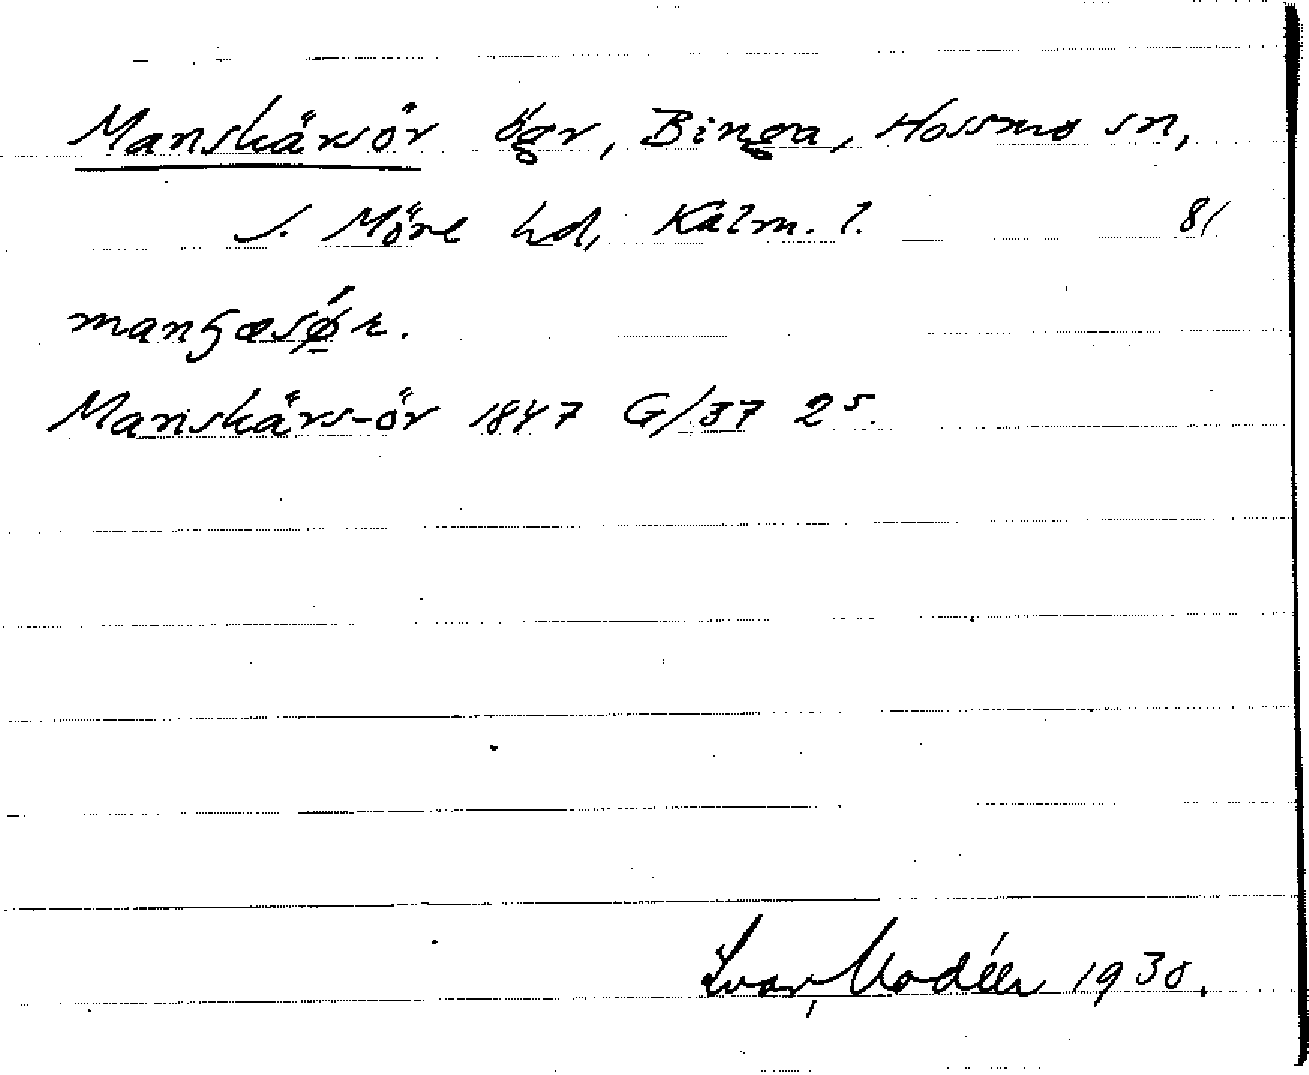 Manskärsör ögr, Binga, Hossmo sn,
S. Möre hd, Kalm. l. 81
Manskärs-ör 1847 G/37 25.
Ivar Modéer 1930.